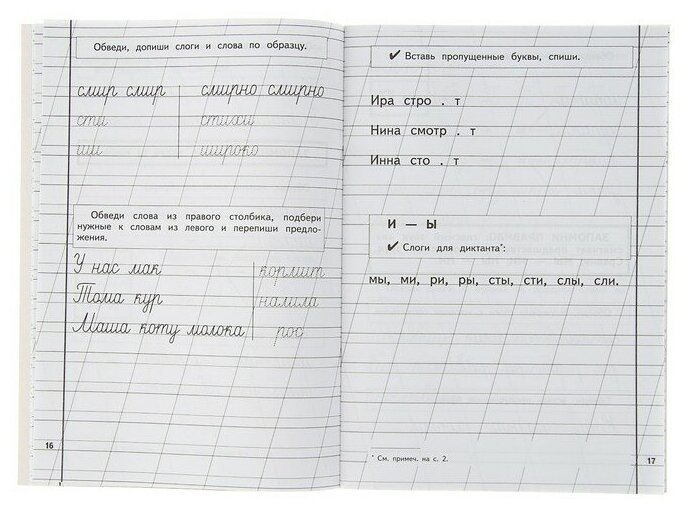 Обведи, допиши слоги и слова по образцу.
смир смир смирно смирно
сти стихи
ши широко
Обведи слова из правого столбика, подбери
нужные к словам из левого и перепиши предло-
жения.
У нас мак кормит
Тома кур налила
Маша коту молока рос
16
✔ Вставь пропущенные буквы, спиши.
Ира стро . т
Нина смотр . т
Инна сто . т
И — Ы
✔ Слоги для диктанта*:
мы, ми, ри, ры, сты, сти, слы, сли.
* См. примеч. на с. 2.
17